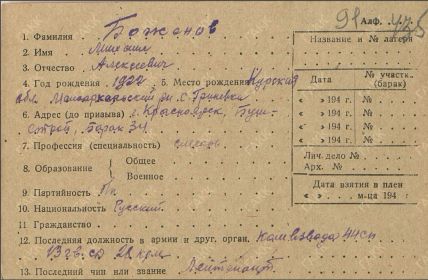 91 Алф. Л.И.
125
1. Фамилия Баженов
2. Имя Михаил
3. Отчество Алексеевич
4. Год рождения 1922 г. 5. Место рождения Курская
обл. р-н с. Гриневка
6. Адрес (до призыва) г. Красноярск,
строй, барак 34
7. Профессия (специальность) слесарь
8. Образование Общее
Военное
9. Партийность
10. Национальность Русский
11. Гражданство
12. Последняя должность в армии и друг. орган. Ком взвода 44 сп
13 гв. сд
13. Последний чин или звание Лейтенант
Название и № лагеря
Дата № участк. (барак)
« » 194 г. №
« » 194 г. №
« » 194 г. №
« » 194 г. №
Лич. дело №
Арх. №
Дата взятия в плен
« » м-ца 194 г